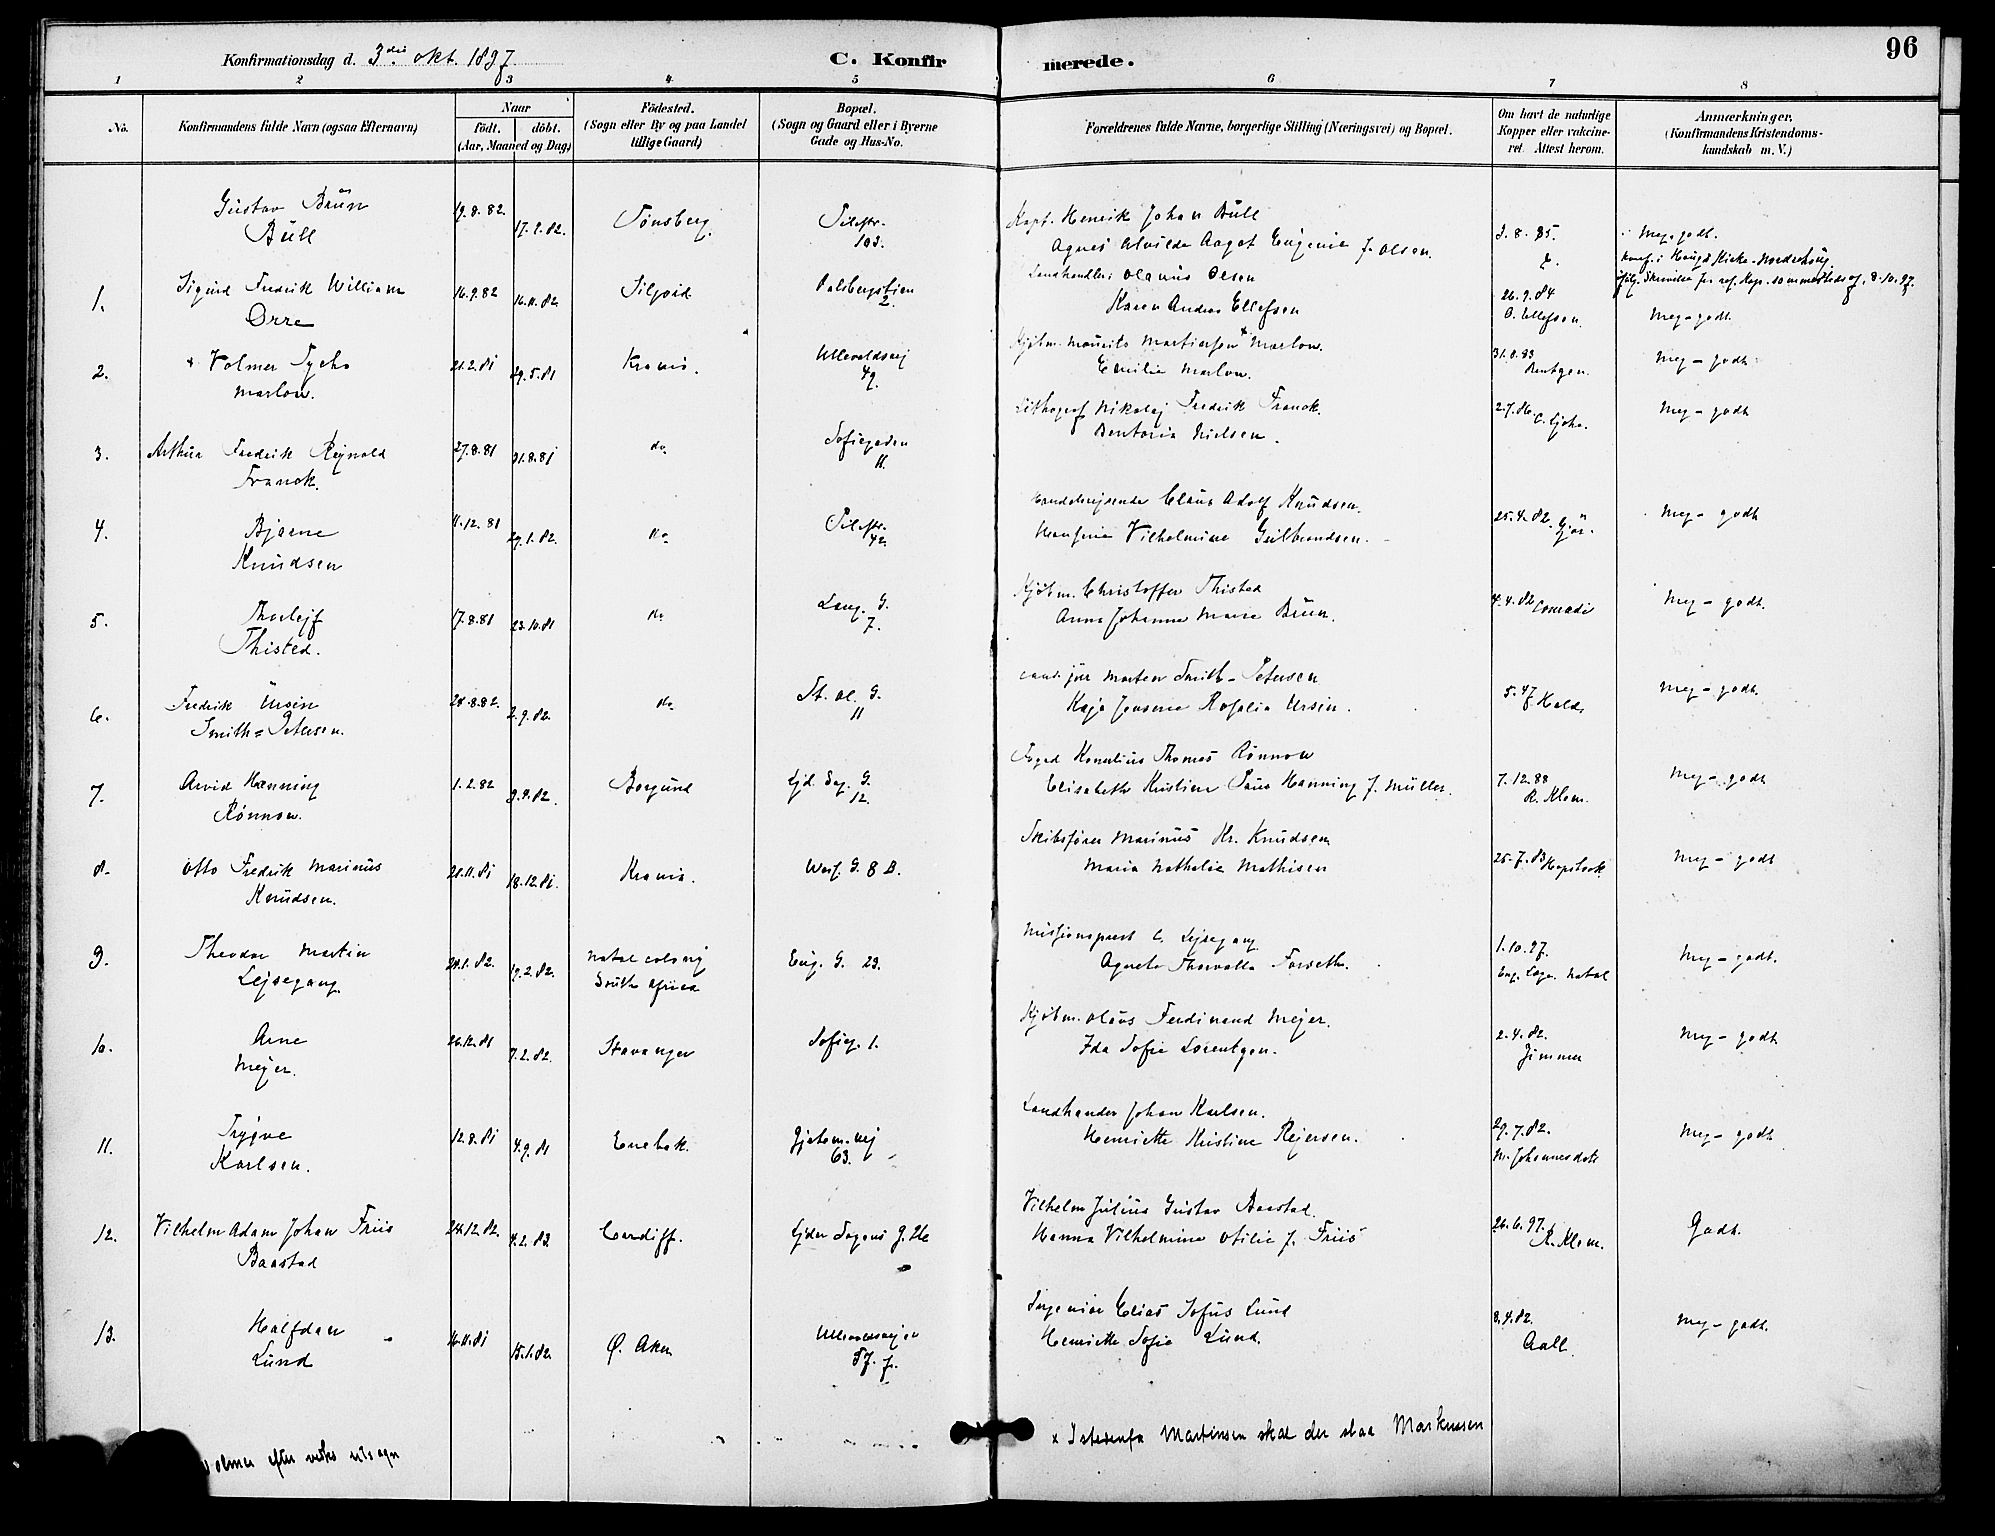 96
Konfirmationsdag d. 3die okt. 1897
C. Konfirmerede.
1 2 3 4 5 6 7 8
No.
Konfirmandens fulde Navn (ogsaa Efternavn)
Naar
födt. döbt.
(Aar, Maaned og Dag)
Födested.
(Sogn eller By og paa Landet
tillige Gaard)
Bopæl.
(Sogn og Gaard eller i Byerne
Gade og Hus-No.
Forældrenes fulde Navne, borgerlige Stilling (Næringsvei) og Bopæl.
Om havt de naturlige
Kopper eller vakcine-
ret. Attest herom.
Anmærkninger.
(Konfirmandens Kristendoms-
kundskab m. V.)
Gustav Bruun
Bull
19.8.82. 17.2.82. Tønsberg.
Pilestr.
103.
Kapt. Henrik Johan Bull
Agnes Alvilde Aagot Eugenie f. Olsen.
3.8.85.
Meg. godt.
konf. i Haugs Kirke - Norderhoug
8.10.97.
1. Sigurd Fredrik William
Orre
16.9.82 16.11.82
Dalsbergstien
2.
Landhandler Olaus Olsen
Karen Andrea Ellefsen
26.9.84
O. Ellefsen.
Meg - godt.
2. * Volmer Tycho
Marlow.
21.2.81 29.5.81 Krania.
Ullevoldsvej
49.
Kjøbm. Mourits Martinsen * Marlow.
Emilie Marlow.
31.8.83
Bentzen.
Meg - godt
3. Arthur Fredrik Reynold
Franck.
27.8.81 21.8.81 do
Sofiegaden
11.
Lithograf Nikolaj Fredrik Franck.
Bentoria Nielsen.
Meg - godt
4. Bjarne
Knudsen
11.12.81 29.1.82. do
Pilestr.
42.
Handelsrejsende Claus Adolf Knudsen.
Hansine Vilhelmine Gulbrandsen.
25.4.82.
Meg - godt
5. Thorlejf
Thisted.
17.8.81 23.10.81 do
Lang. G.
7.
Kjøbm. Christoffer Thisted
Anna Johanne Marie Bruun.
4.4.82 Conradi
Meg - godt.
6. Fredrik Ursin
Smith=Petersen.
28.8.82. 2.9.82. do
St. Ol. G.
11
cand. jur Morten Smith-Petersen
Kaja Jensine Rosalie Ursin.
Meg - godt.
7. Arvid Hanning
Rønnow.
1.2.82 9.9.82. Borgund
Ejd. Sag. G.
12.
Foged Kornelius Thomas Rønnow
Elisabeth Kristine Hanning f. Müller.
7.12.88
R. Klem.
Meg - godt
8. Otto Fredrik Marinus
Knudsen.
21.11.81 18.12.81. Krania.
G. 8 B.
Skibsfører Marinus Kr. Knudsen
Maria Nathalie Mathisen
Meg - godt
9. Theodor Martin
Lejsegang.
19.2.82. Natal colony
South Africa
Eug. G. 23.
Missionsprest L. Lejsegang
Agnete Thorvalla Forseth.
1.10.97.
Natal
Meg - godt.
10. Arne
Mejer.
26.12.81 7.2.82. Stavanger
Sofieg. 1.
Kjøbm. Olaus Ferdinand Mejer.
Ida Sofie Lorentzen.
2.4.82.
Zimmer
Meg - godt
11. Trygve
Karlsen.
12.8.81 4.9.81 Enebak.
Gjetem. vej
63.
Landhandler Johan Karlsen.
Henriette Kristine Rejersen.
29.7.82.
Meg - godt
12. Vilhelm Adam Johan Friis
Baastad
24.12.82. 4.2.83. Cardiff.
Vilhelm Julius Gustav Baastad.
Hanna Vilhelmine Otilie f. Friis
26.6.97.
R. Klem.
Godt.
13. Halfdan
Lund
16.11.81 15.1.82. Ø. Aker
Ullevoldsvejen
Ingeniør Elias Sofus Lund
Henriette Sofie Lund.
8.4.82.
Aall.
Meg - godt.
x Istedenfor Martinsen skal der staa Markussen